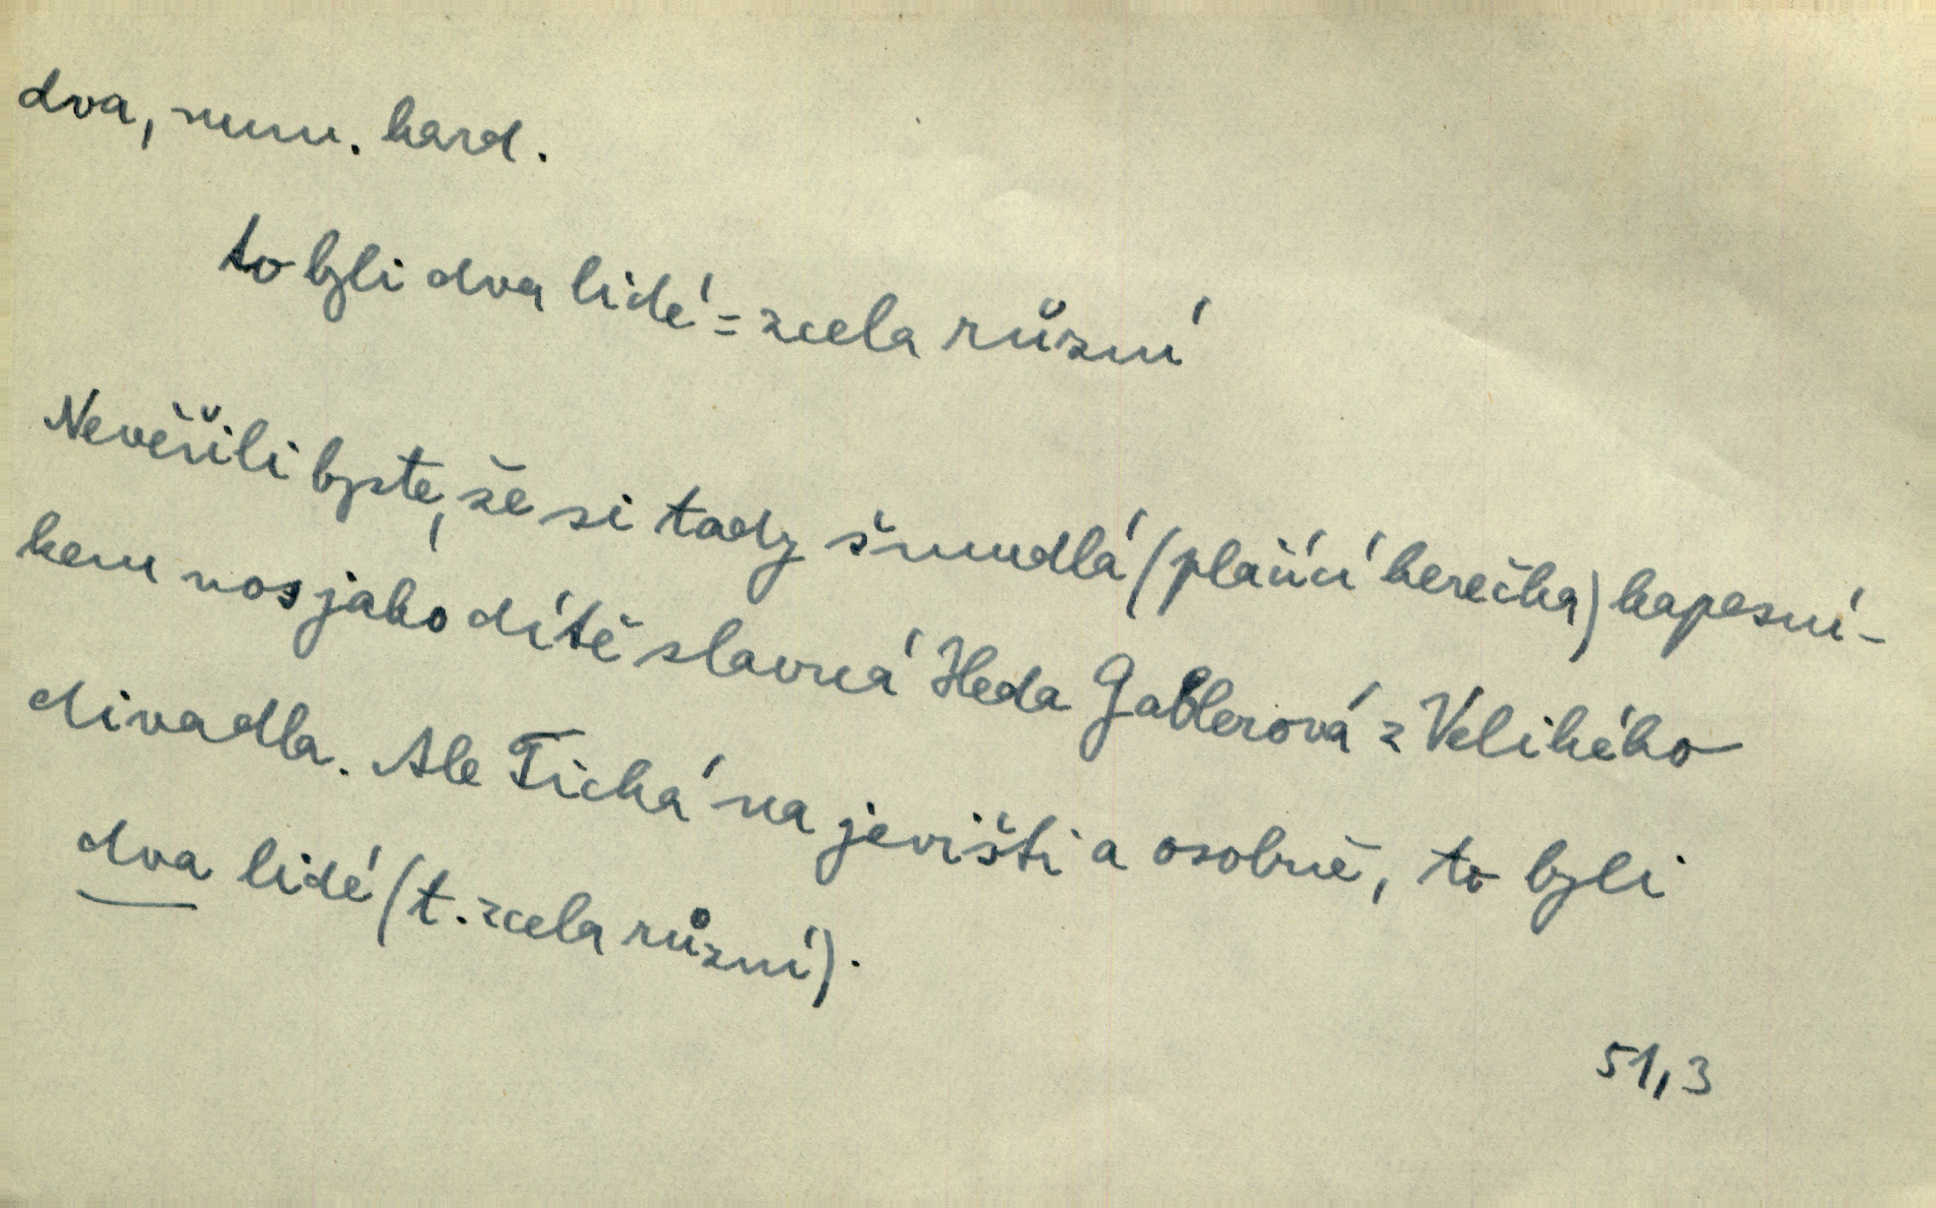 dva, num. kard.
to byli dva lidé = zcela různí
Nevěřili byste, že si tady šmudlá (plačící herečka) kapesní-
kem nos jako dítě slavná Heda Gablerová z Velikého
divadla. Ale Tichá na jevišti a osobně, to byli
dva lidé (t. zcela různí).
51,3